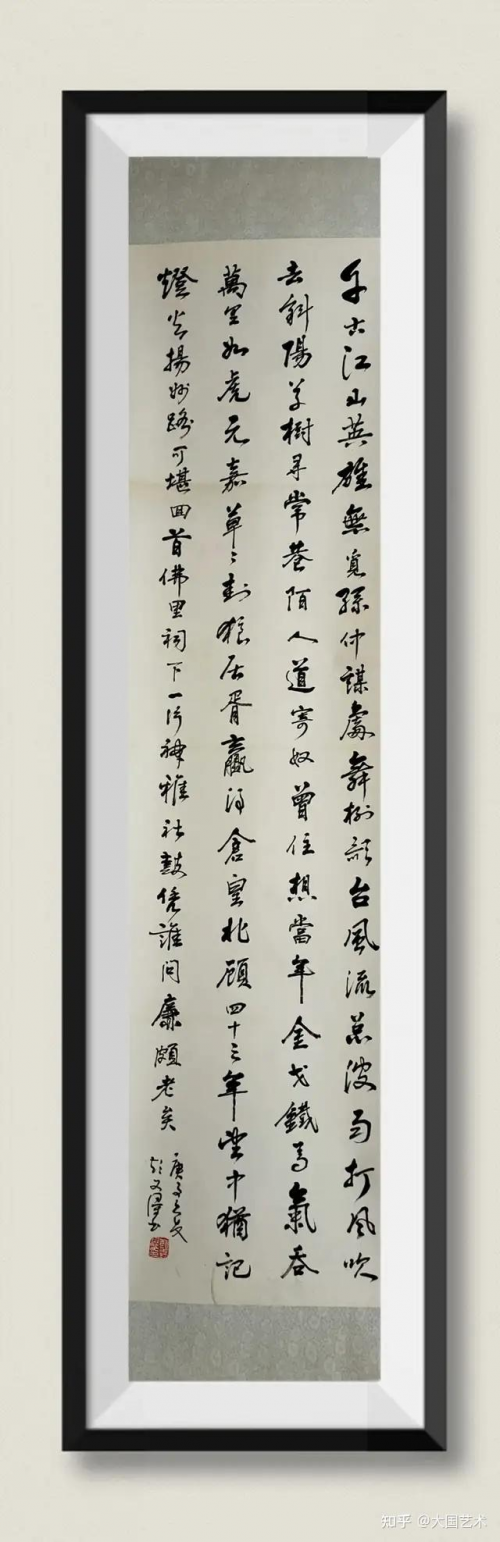 千古江山英雄無覓孫仲謀處舞榭歌台風流总被雨打風吹
去斜陽草樹尋常巷陌人道寄奴曾住想當年金戈鐵馬氣吞
萬里如虎元嘉草〻封狼居胥贏得倉皇北顧四十三年望中猶記
燈火揚州路可堪回首佛里祠下一片神鴉社鼓凭誰問廉頗老矣
庚子之夏
知乎 @大国艺术